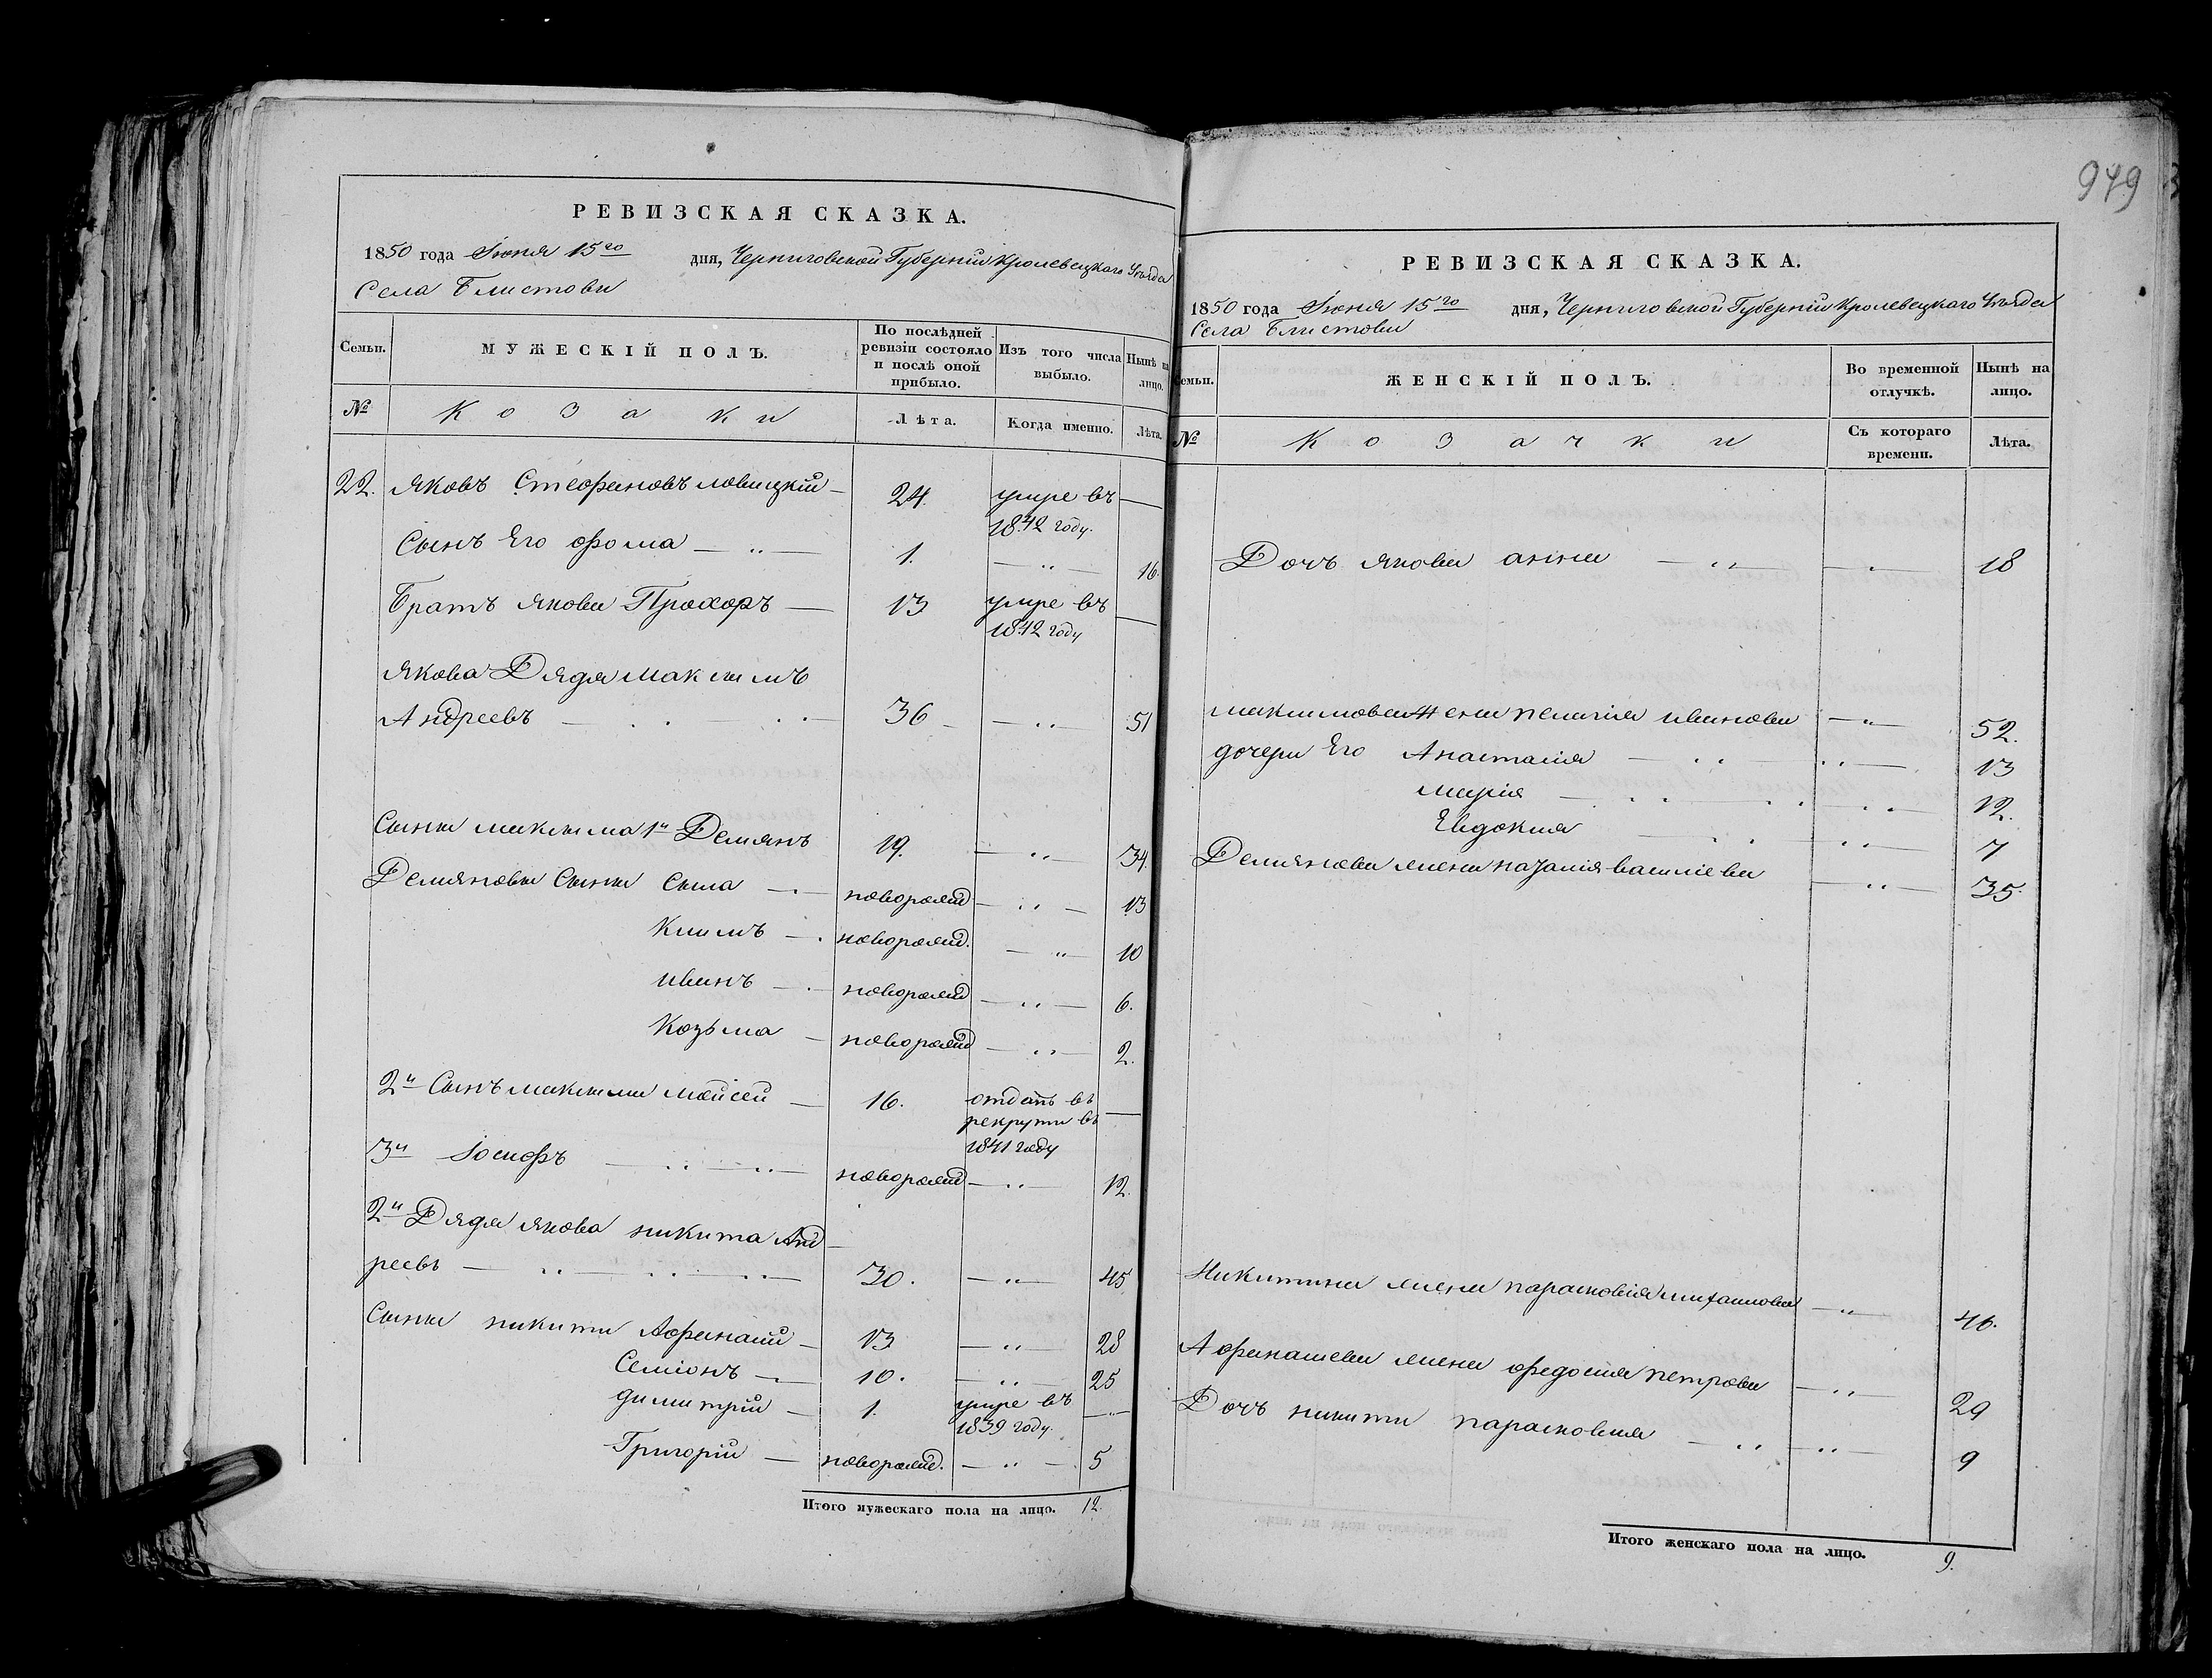 979
РЕВИЗСКАЯ СКАЗКА.
1850 года Іюня 15го дня, Черниговской Губерніи Кролевецкаго Уѣзда
Села Блистови
Семьи. МУЖЕСКІЙ ПОЛЪ. По послѣдней ревизіи состояло и послѣ оной прибыло. Изъ того числа выбыло. Нынѣ на лицо.
№ Козаки Лѣта. Когда именно. Лѣта.
22. Яковъ Стефановъ 24. умре въ 1842 году. —
Сынъ Его Фома — „ — 1. — „ — 16.
Братъ Якова Прохоръ — 13 умре въ 1842 году —
Якова Дядя Максимъ
Андреевъ — 36 — „ — 51
Сыни Максима 1й Демянъ 19. — „ — 34.
Демянови Сыни Сила — новорожд — „ — 13
Климъ — новорожд. — „ — 10
Иванъ — новорожд — „ — 6.
Козьма — новорожд — „ — 2.
2й Сынъ Максима Мойсей — 16. отданъ въ рекрути въ 1841 году —
3й Іосифъ — „ — новорожд — „ — 12.
2й Дядя Якова Никита Анд
реевъ — „ — 30. — „ — 45.
Сыни Никити Афанасій — 13 — „ — 28
Семіонъ — 10. — „ — 25
Димитрій — 1. умре въ 1839 году. — „ —
Григорій — новорожд. — „ — 5
Итого мужескаго пола на лицо. 12.
РЕВИЗСКАЯ СКАЗКА.
1850 года Іюня 15го дня, Черниговской Губерніи Кролевецкаго Уѣзда
Села Блистови
Семьи. ЖЕНСКІЙ ПОЛЪ. Во временной отлучкѣ. Нынѣ на лицо.
№ Козачки Съ котораго времени. Лѣта.
Дочъ Якова Анна — „ — — „ — 18
Максимова Жена Пелагія Иванова — „ — 52.
дочери Его Анастасія — „ — 13
Марія — „ — 12.
Евдокия — „ — 7
Демянова жена Наталія Василіева — „ — 35.
Никитина жена Парасковія Михаилова — „ — 46.
Афанасиева жена Федосия Петрова — „ — 29
Дочъ Никити Парасковия — „ — 9
Итого женскаго пола на лицо. 9.